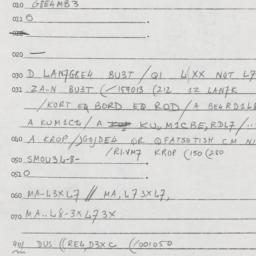 010 G8E4MB3
011 0
020 —
030 D LAN7G8E4 BU3T / QI L XX NOT L7
031 ZA.N BU3T (/159013 (212 12 LAN7K
/KORT EQ BORD EQ ROD / A BE4RD1L
A KUM1C12 / A KU, M1CBE, RDL7 /..
040 A KROP /)GOJDE4 OR QFATS6TISH CM NI
/RI.VM7 KROP (150 (280
050 SMOU3L-8-
051 0
060 MA-L3XL7 // MA, L73XL7,
070 MA.. L8-3XL73X
901 DUS ((RE4,D3XC (/001050